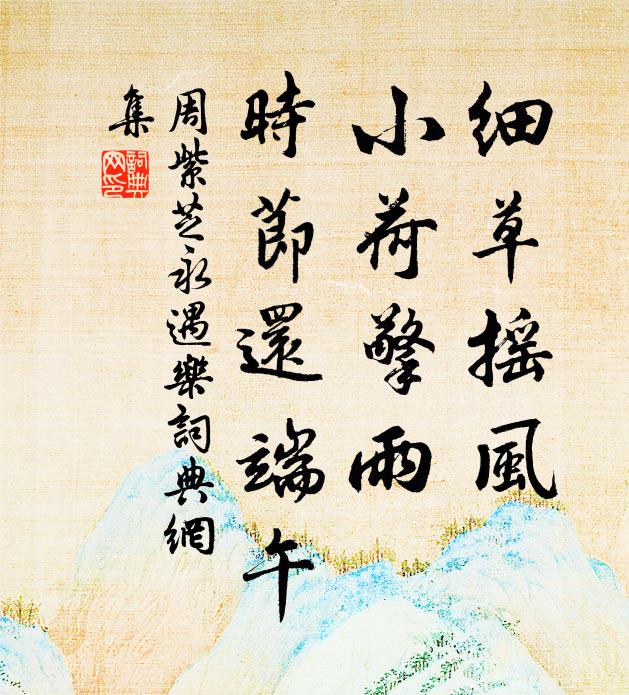 细草摇風
小荷擎雨
時節還端午
周紫芝永遇樂詞典網
集
詞典
网印